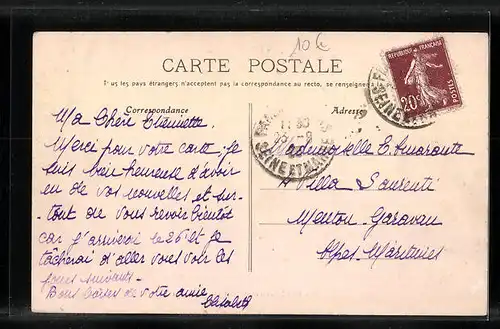 10€
CARTE POSTALE
Tous les pays étrangers n'acceptent pas la correspondance au recto, se renseigner
Correspondance
Adresse
Ma Chère Etiennette
Merci pour votre carte, je
suis bien heureuse d'avoir
eu de vos nouvelles et sur-
tout de vous revoir bientôt
car j'arriverai le 26 et je
tâcherai d'aller vous voir les
jours suivants.
Bons baisers de votre amie
Mademoiselle E.
Villa Laurenti
Menton-Garavan
Alpes-Maritimes
REPUBLIQUE FRANÇAISE
20c
POSTES
SEINE ET MARNE
SEINE ET MARNE